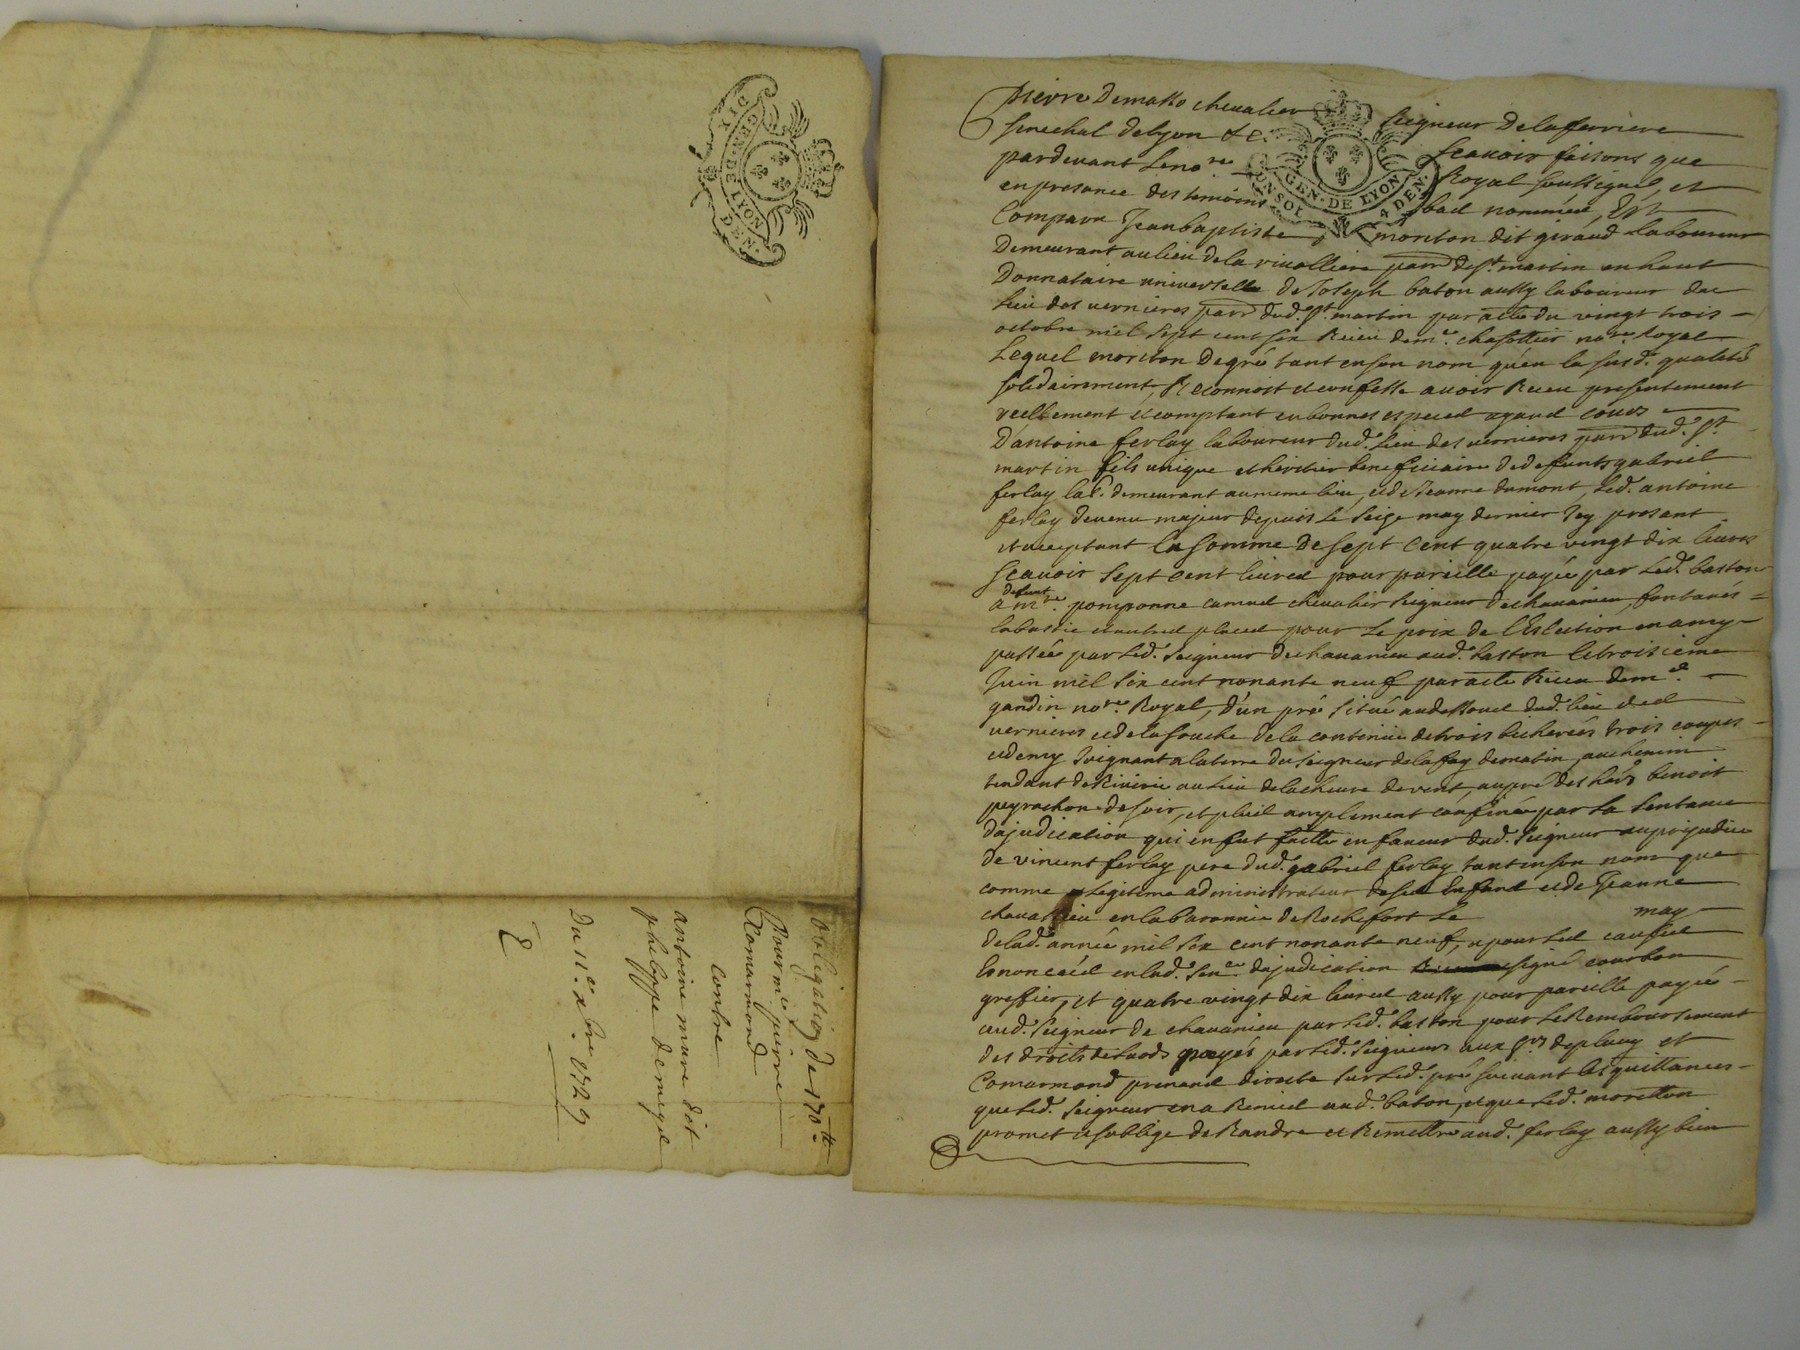 GEN·DE LYON
DEN·
Obligation de 170 tt
Pour mr pierre
Comarmond
contre
antoine mure dit
phelippe demeyel
Du 11e xbre 1729
Pierre Demasso chevalier Seigneur Delaferriere
Senechal delyon &c. Scavoir faisons que
pardevant Leno.re Royal soussigné, et
en presance des temoins bad nommés, Est
GEN·DE LYON·
4 DEN·
Comparu Jeanbaptiste moreton dit giraud Laboureur
Demeurant au lieu dela rivolliere parr de st. martin enhaut
Donnataire universelle de Joseph baton aussy laboureur du
lieu des vernieres parr dud. st. martin par acte du vingt trois
octobre mil sept cent six Receu dem.e chasottier no.re Royal
Lequel moreton Degré tant enson nom qu'en la susd. qualité
solidairement, Reconnoit et confesse avoir Receu presentement
reellement et comptant en bonnes especes ayand cours
D'antoine ferlay laboureur dud. lieu des vernieres parr dud. st.
martin fils unique et heritier beneficiaire de defunts gabriel
ferlay lab.r demeurant au meme lieu, et de Jeanne dumont, led. antoine
ferlay devenu majeur depuis le seize may dernier Icy presant
et acceptant la somme De sept cent quatre vingt dix livres
scavoir sept cent livres pour pareille payée par led. baston
defunt
a m.re pomponne camus chevalier seigneur de chavanieu, fontanés
labastie et autres places pour le prix de l'Eslection en amy
passée par led. seigneur de chavanieu aud. baston le troisieme
Juin mil six cent nonante neuf par acte Receu dem.e
gandin no.re Royal, d'un pré situé au dessous dud. lieu des
vernieres et de la souche de la continue de trois bicherées trois coupes
et demy Joignant a la terre du seigneur de la fay de matin, au chemin
tendant de Riverie au lieu de la cheure de vent, au pré des her.s benoit
peyrachon de soir, et plus amplement confiné par la sentance
dajudication qui en fut faitte en faveur dud. seigneur au prejudice
de vincent ferlay pere dud. gabriel ferlay tant en son nom que
comme Legitime administrateur de ses Enfans et de Jeanne
chavassieu en la baronnie de Rochefort Le may
de lad. année mil six cent nonante neuf, et pour les causes
Enoncées en lad. sen.ce dajudication signé courbon
greffier, et quatre vingt dix livres aussy pour pareille payée
aud. seigneur de chavanieu par led. baston pour le Remboursement
des droits de lods payés par led. seigneur aux s.rs deplucy et
Comarmond prenand directe sur led. pré suivant les quittances
que led. seigneur en a Remis aud. baton, et que led. moretton
promet et soblige de Randre et Remettre aud. ferlay aussy bien